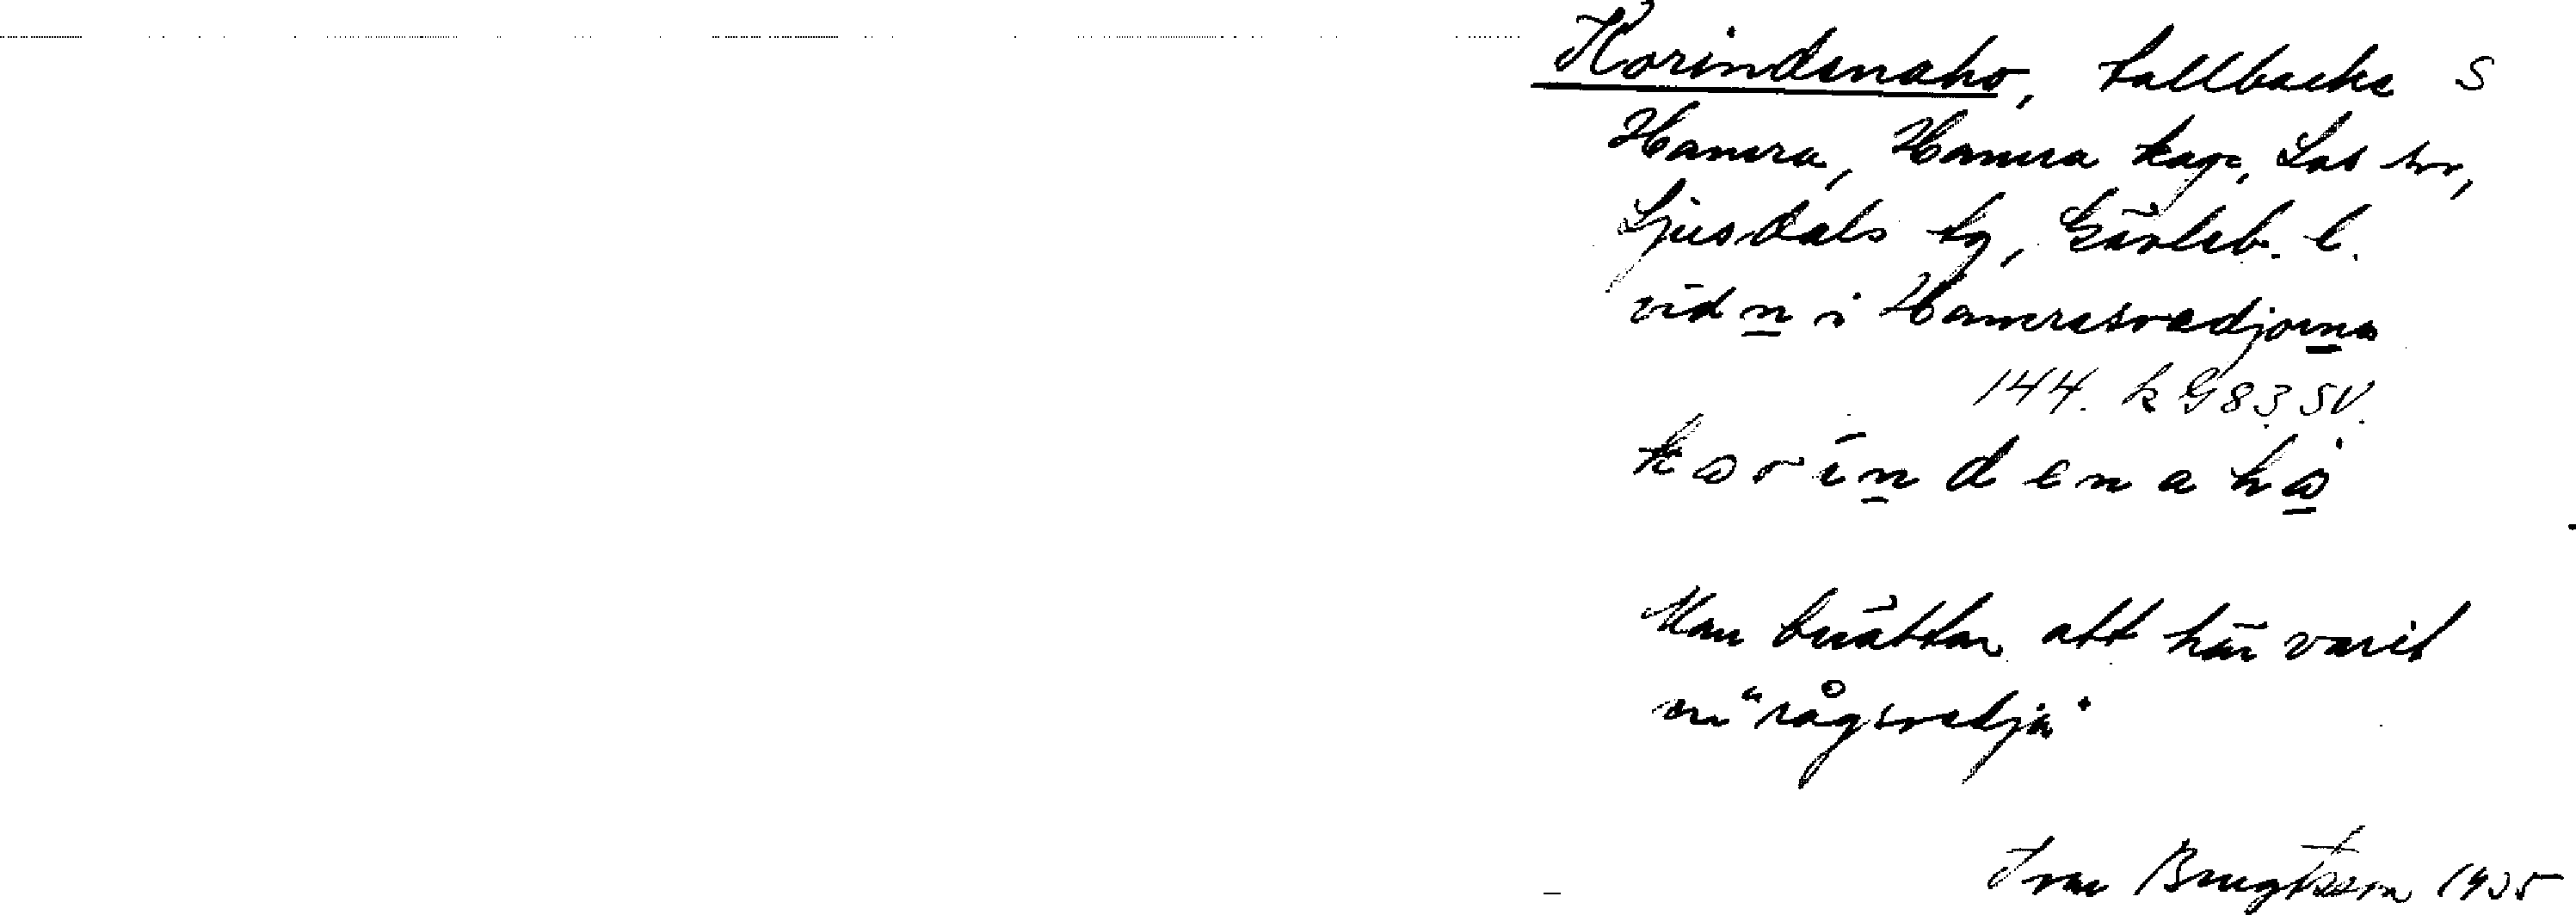 Korindenaho, tallbacke S
Hamra, Hamra kapc, Los sn,
Ljusdals tg, Gävleb. l.
vid n i Hamrasvedjorna
144. k G 83 SV.
korindenaho
Man berättar att här varit
en "rågsvedja"
Ivar Bengtsson 1935